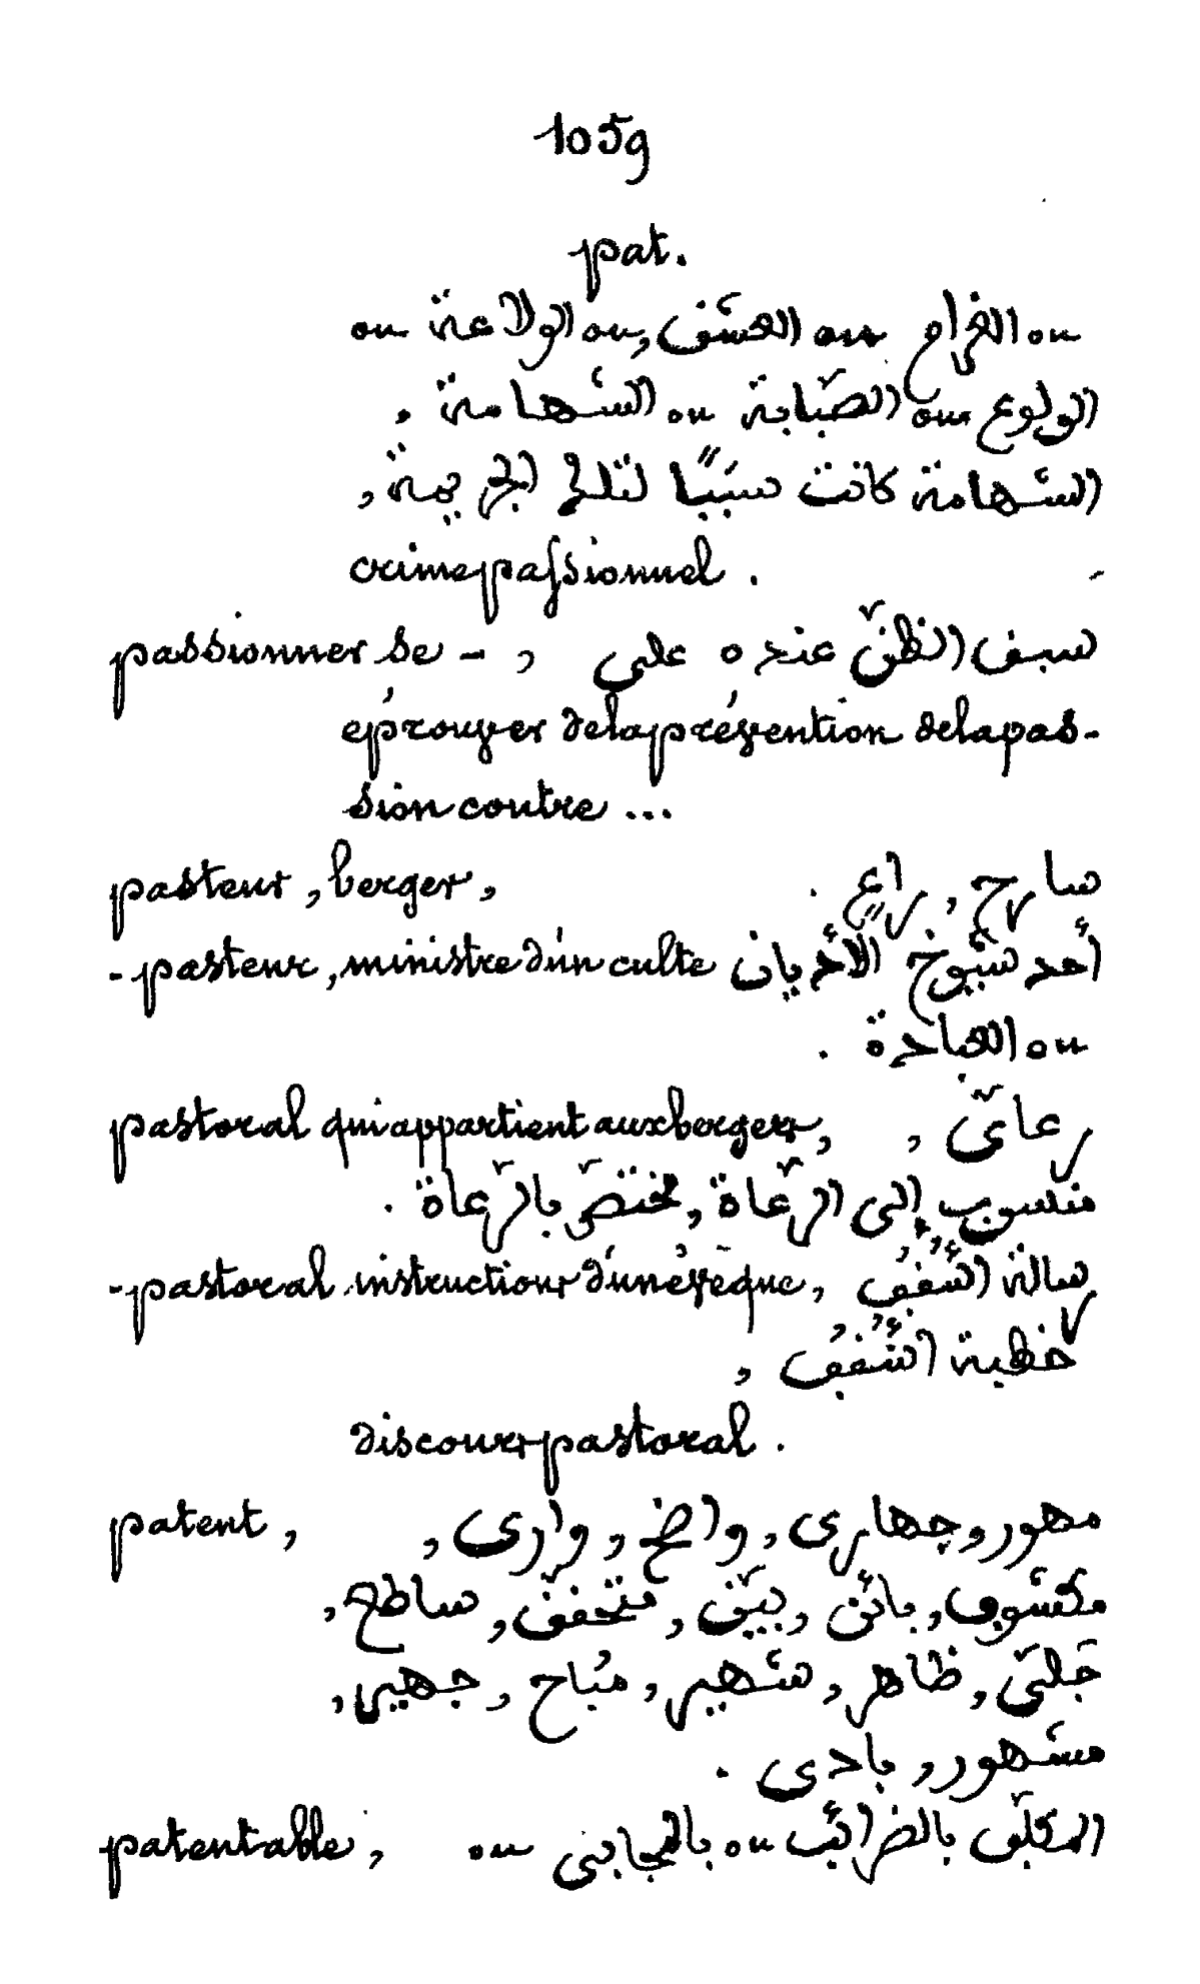 1059
pat.
ou الغرام ou العشق, ou الولاعة ou
الولوع ou الصّبابة ou الشهامة .
الشهامة كانت سببًا لتلك الجريمة ,
crime passionnel .
passionner se - , سبق الظنّ عنده على
éprouver de la prévention de la pas-
sion contre ...
pasteur , berger , سارح , راعٍ .
- pasteur , ministre d'un culte أحد شيوخ الأديان
ou الهباذرة .
pastoral qui appartient aux bergers, رعائىّ ,
منسوب إلى الرّعاة , مختصّ بالرّعاة .
- pastoral instructions d'un évêque , رسالة أسْقُف
خطبة أسْقُف ,
discours pastoral .
patent , مهور , جهارى , واضح , وارى ,
مكشوف , بائن , بيّن , متحقّق , ساطع ,
جلىّ , ظاهر , شهير , مُباح , جهير ,
مشهور , بادى .
patentable , المكلّف بالضرائب ou بالمجابى ou